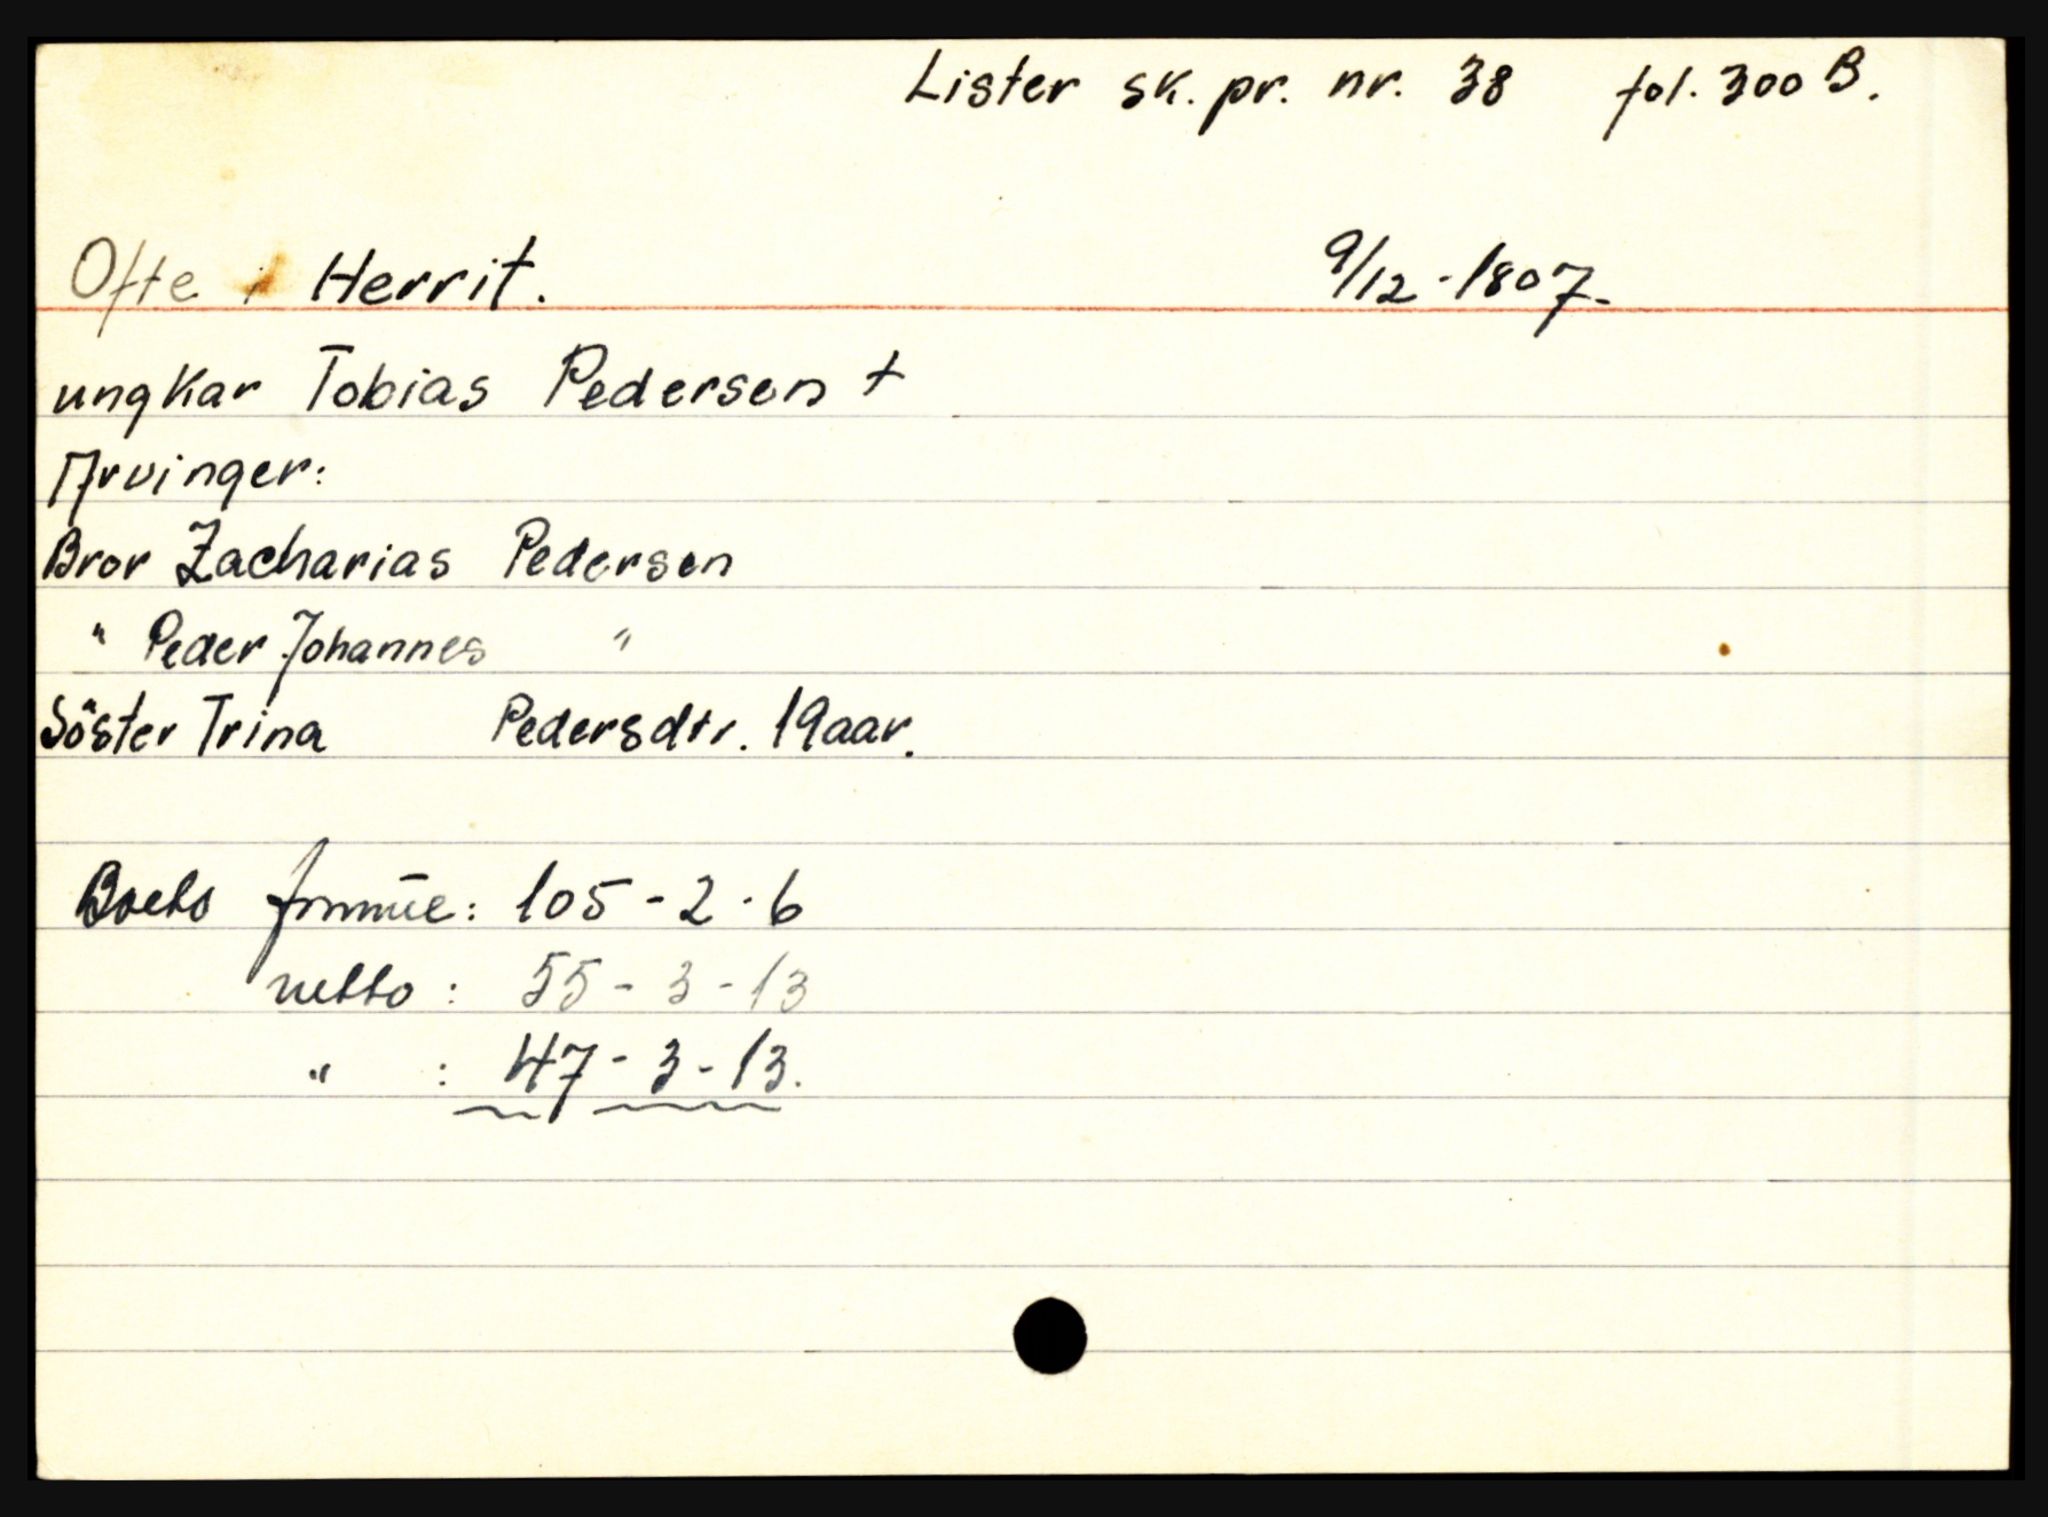 Lister sk. pr. nr. 38 fol. 300 B.
Ofte i Herrit. 9/12 - 1807.
ungkar Tobias Pedersen +
Arvinger:
Bror Zacharias Pedersen
" Peder Johannes "
Söster Trina Pedersdtr. 19 aar.
Boets formūe: 105 - 2 - 6
netto: 55 - 3 - 13
" : 47 - 3 - 13.